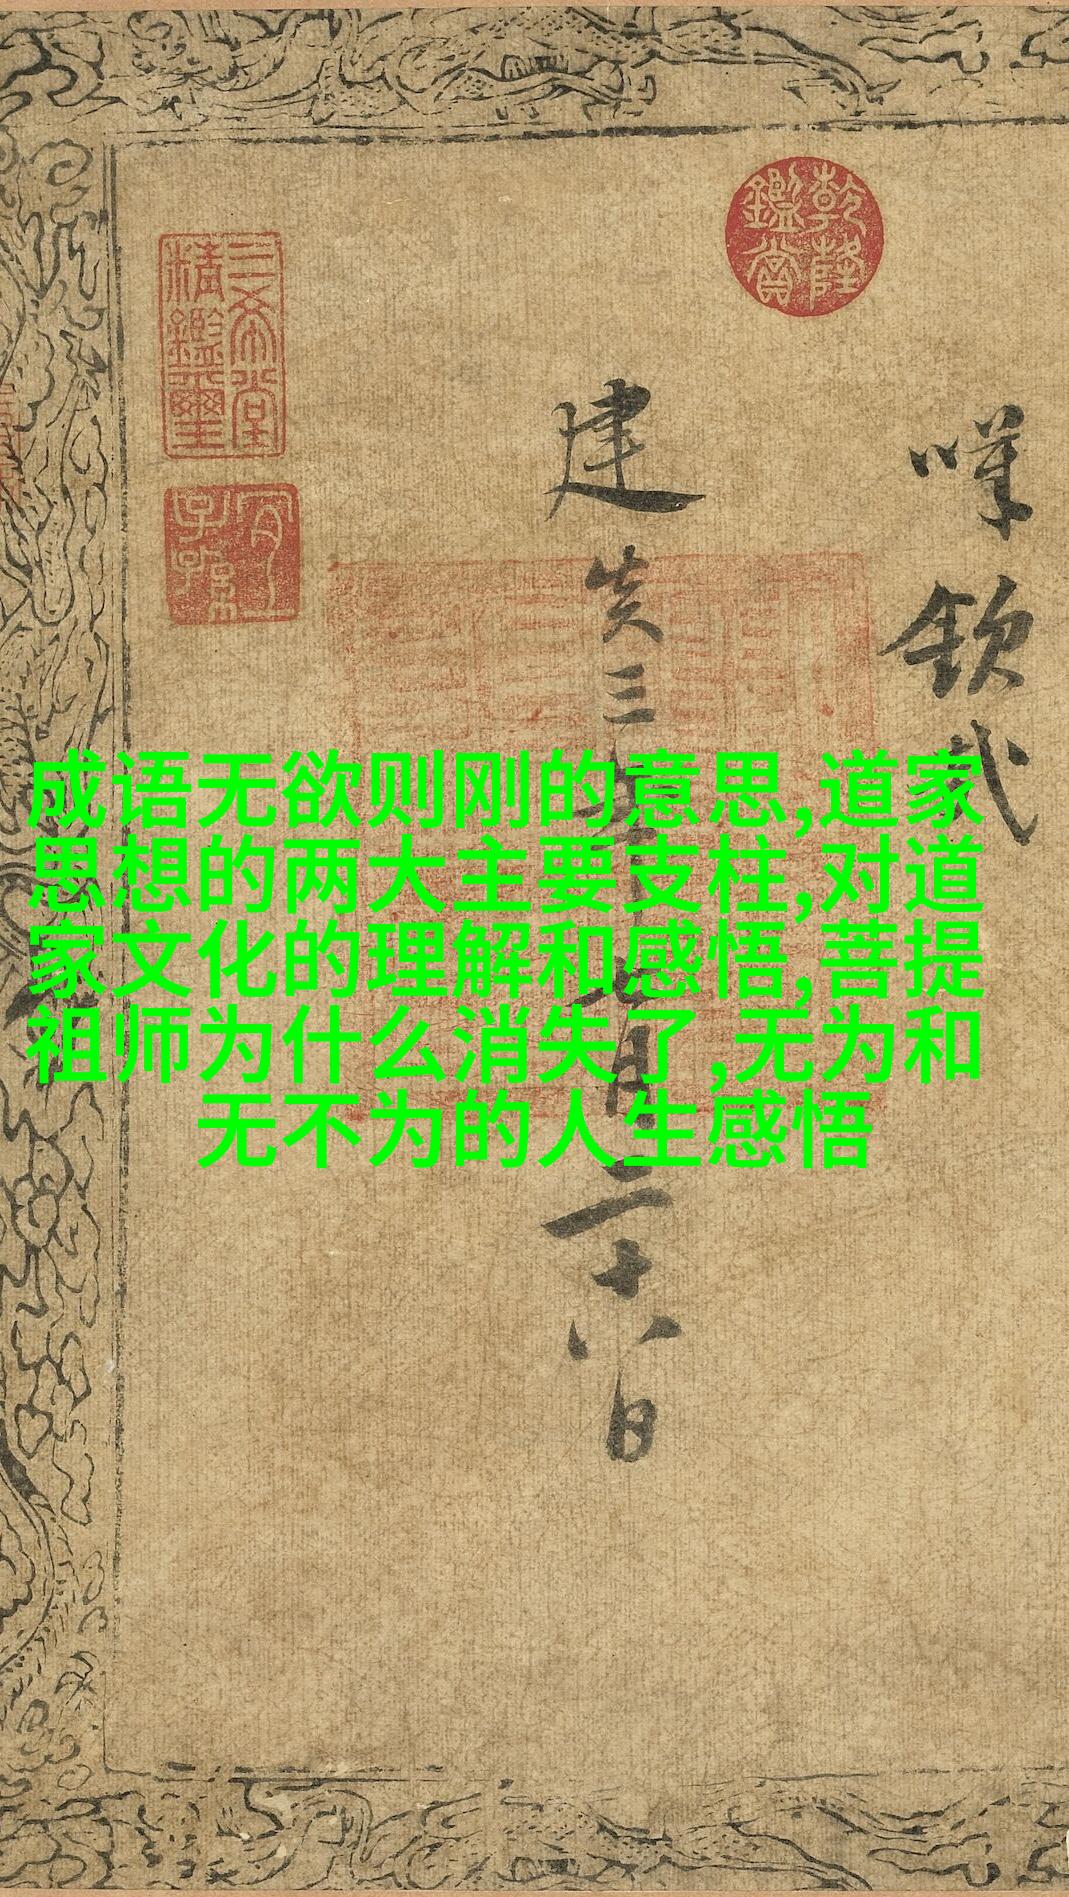 嘆欽哉
建炎三年七月二十八日
乾隆鑑賞
三希堂精鑑璽
宜子孫
成语无欲则刚的意思,道家
思想的两大主要支柱,对道
家文化的理解和感悟,菩提
祖师为什么消失了,无为和
无不为的人生感悟